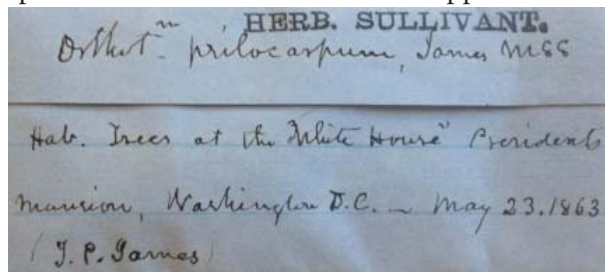 HERB. SULLIVANT.
Orthotm. psilocarpum, James MSS
Hab. Trees at the "White House" Presidents
Mansion, Washington D.C. — May 23. 1863
(T. P. James)